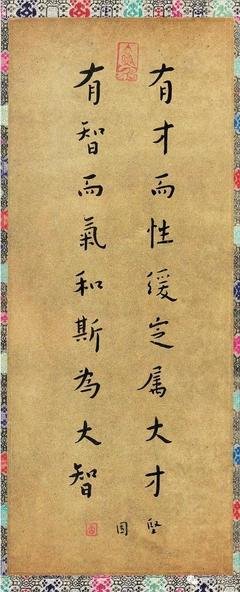 有才而性緩定属大才
有智而氣和斯為大智
堅
固